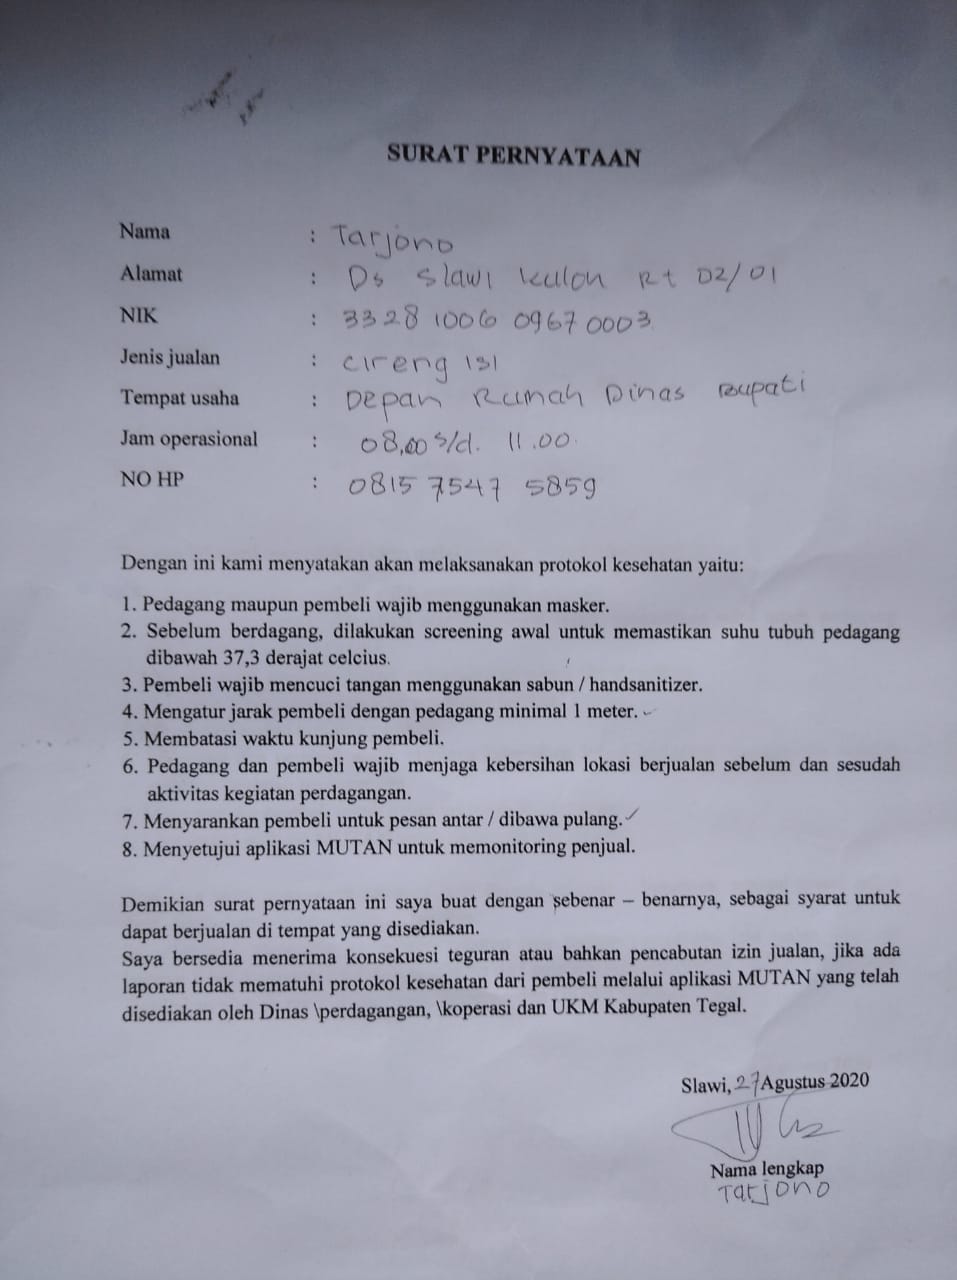 SURAT PERNYATAAN
Nama : Tarjono
Alamat : Ds Slawi Kulon Rt 02/01
NIK : 33 28 1006 0967 0003
Jenis jualan : cireng isi
Tempat usaha : Depan Rumah Dinas Bupati
Jam operasional : 08,00 s/d. 11.00
NO HP : 0815 7547 5859
Dengan ini kami menyatakan akan melaksanakan protokol kesehatan yaitu:
1. Pedagang maupun pembeli wajib menggunakan masker.
2. Sebelum berdagang, dilakukan screening awal untuk memastikan suhu tubuh pedagang
dibawah 37,3 derajat celcius.
3. Pembeli wajib mencuci tangan menggunakan sabun / handsanitizer.
4. Mengatur jarak pembeli dengan pedagang minimal 1 meter.
5. Membatasi waktu kunjung pembeli.
6. Pedagang dan pembeli wajib menjaga kebersihan lokasi berjualan sebelum dan sesudah
aktivitas kegiatan perdagangan.
7. Menyarankan pembeli untuk pesan antar / dibawa pulang.
8. Menyetujui aplikasi MUTAN untuk memonitoring penjual.
Demikian surat pernyataan ini saya buat dengan sebenar – benarnya, sebagai syarat untuk
dapat berjualan di tempat yang disediakan.
Saya bersedia menerima konsekuesi teguran atau bahkan pencabutan izin jualan, jika ada
laporan tidak mematuhi protokol kesehatan dari pembeli melalui aplikasi MUTAN yang telah
disediakan oleh Dinas \perdagangan, \koperasi dan UKM Kabupaten Tegal.
Slawi, 27 Agustus 2020
Nama lengkap
Tarjono